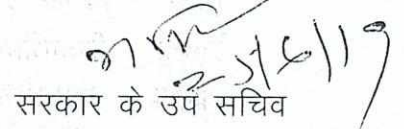 25/6/19
सरकार के उप सचिव